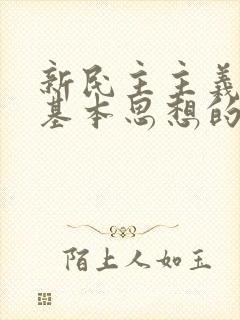 新民主主義
基本思想的
陌上人如玉